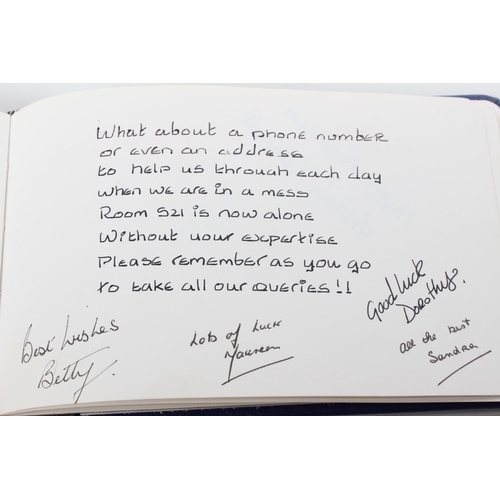 What about a phone number
or even an address
to help us through each day
when we are in a mess
Room 521 is now alone
Without your expertise
Please remember as you go
to take all our queries!!
Best Wishes
Betty.
Lots of Luck
Maureen
Good luck
Dorothy.
all the best
Sandra